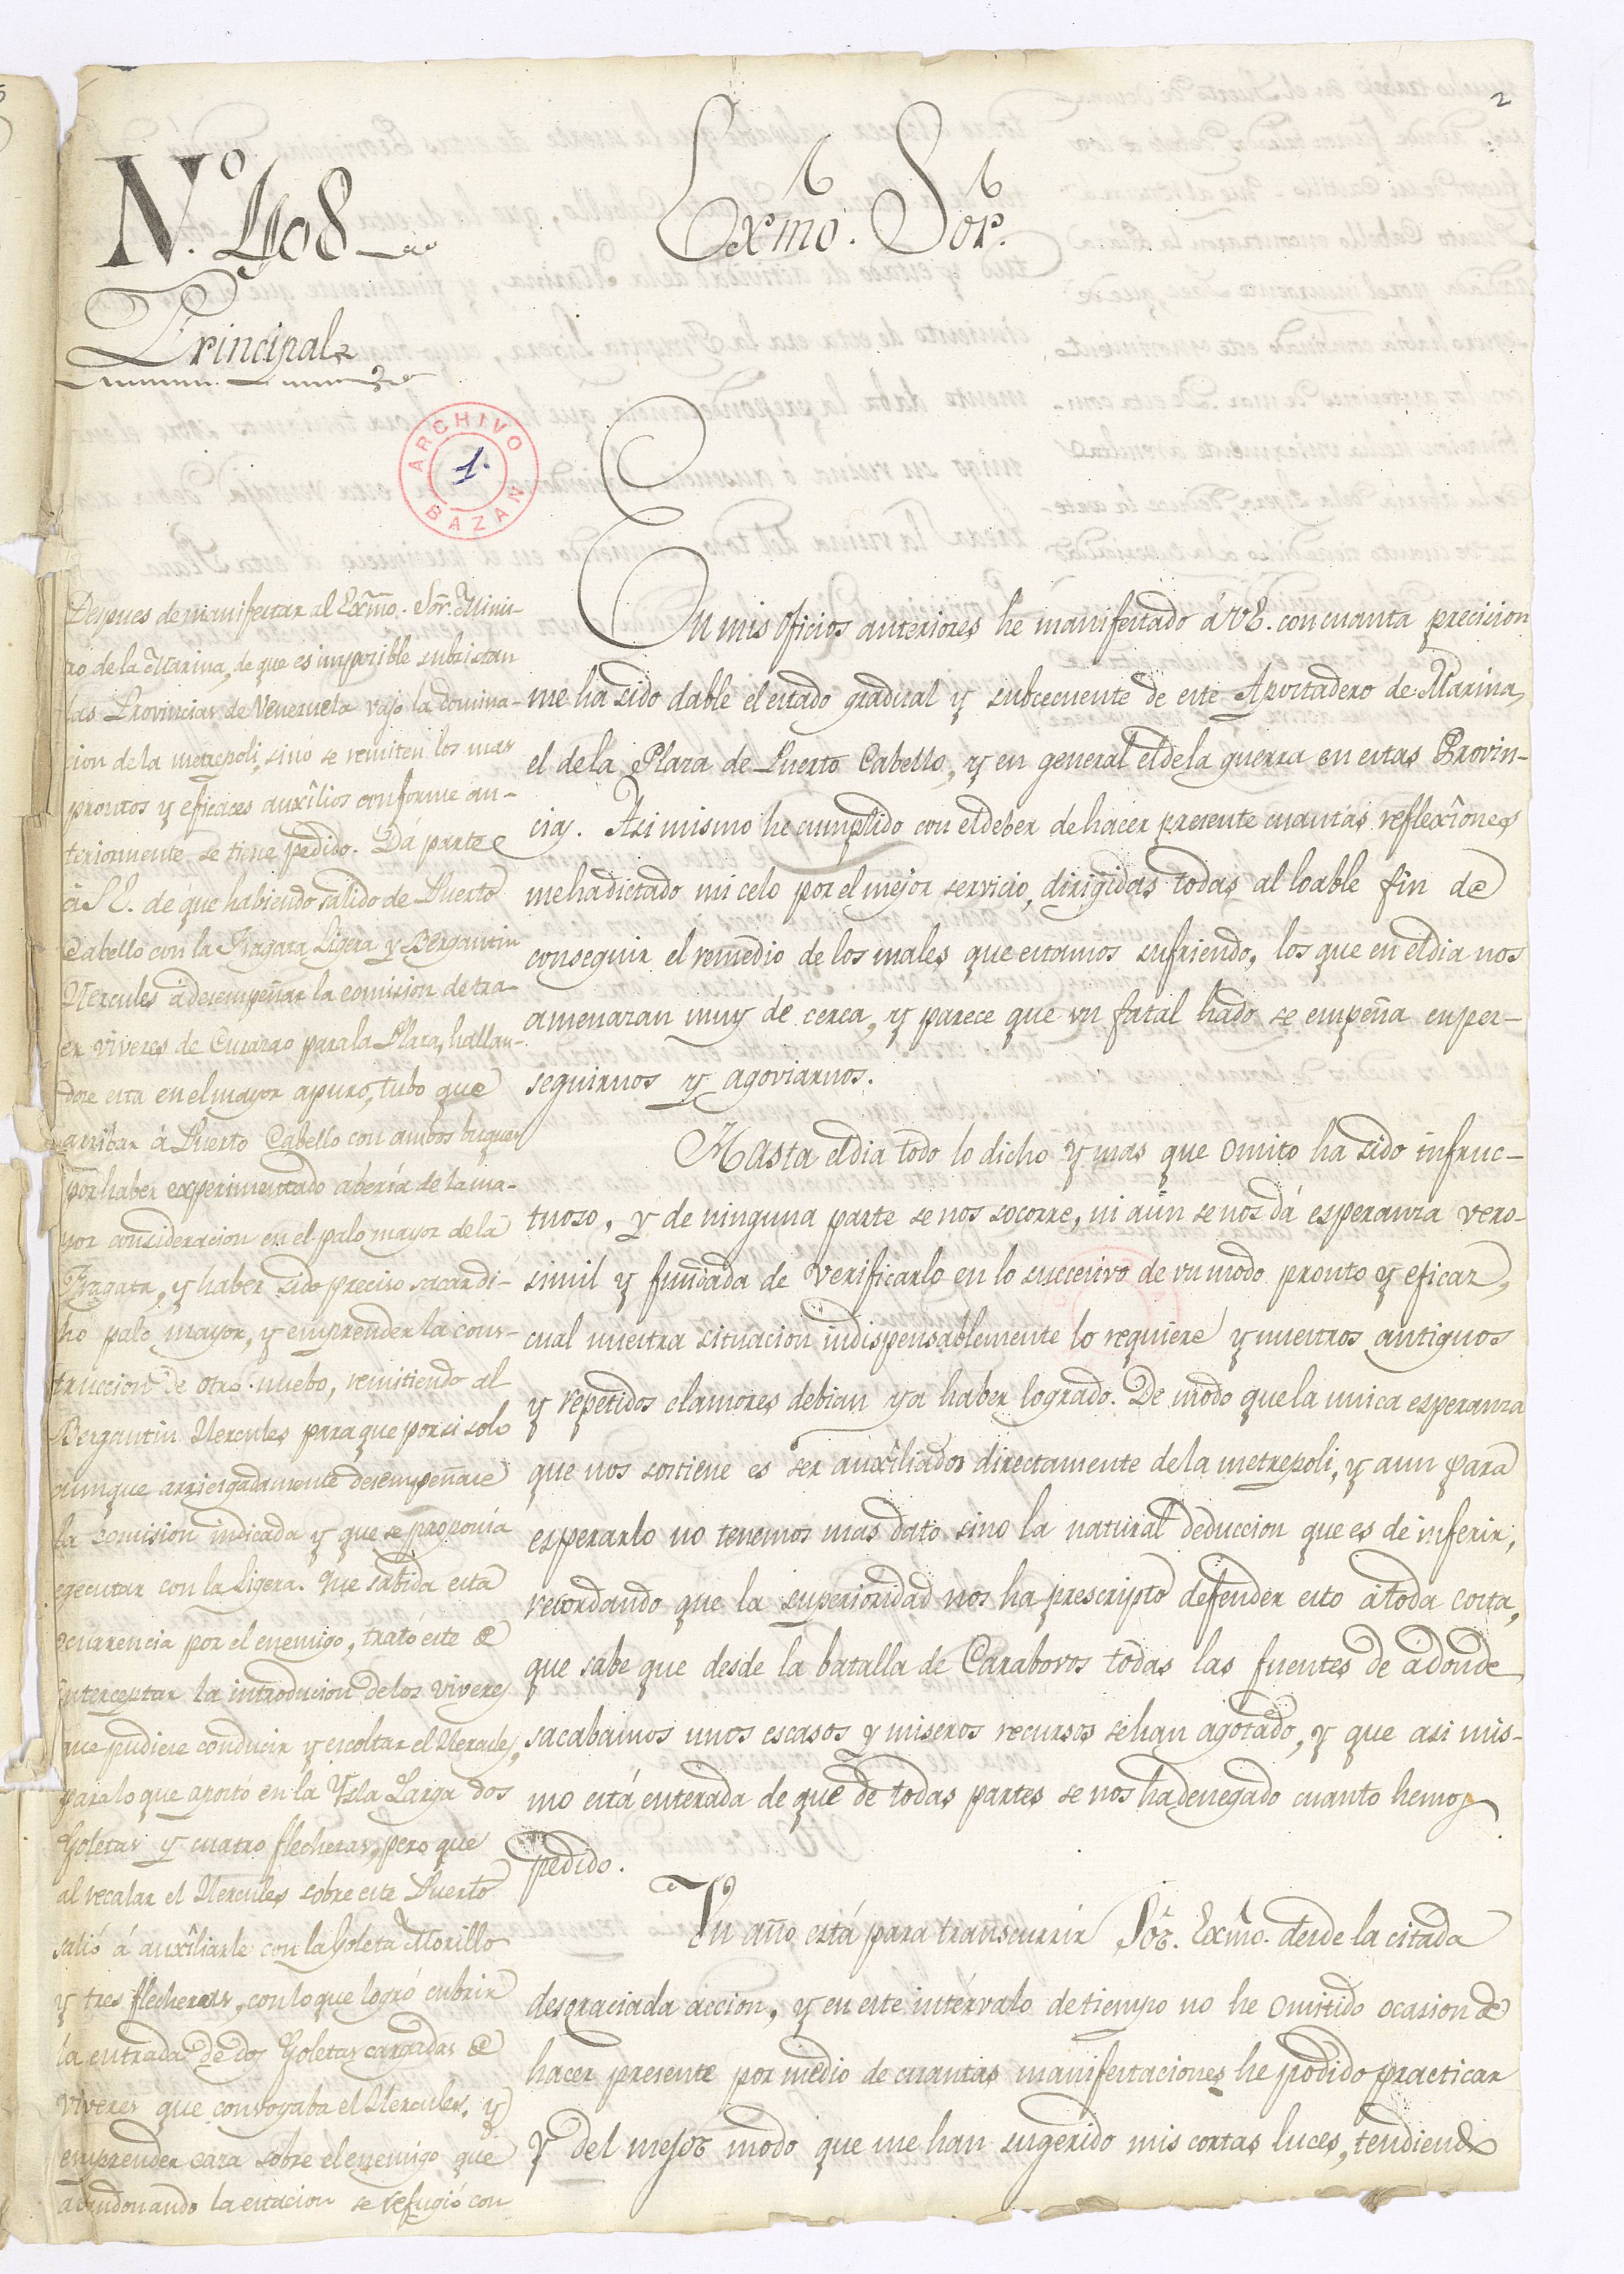 2
N.º 408
Principal
Exmo. Sor.
ARCHIVO
1.
BAZAN
Despues de manifestar al Exmo. Sor. Minis-
tro de la Marina, de que es imposible subsistan
las Provincias de Venezuela vajo la domina-
cion de la metrepoli, sinó se remiten los mas
prontos y eficaces auxîlios conforme an-
teriormente se tiene pedido. Dá parte
á S.E. de que habiendo salido de Puerto
Cabello con la Fragata Ligera y Bergantin
Hercules á desempeñar la comision de tra-
er viveres de Curazao para la Plaza, hallan-
dose esta en el mayor apuro, tubo que
arribar á Puerto Cabello con ambos buques
por haber experimentado abería de la ma-
yor consideracion en el palo mayor de la
Fragata, y haber sido preciso sacar di-
ho palo mayor, y emprender la cons-
truccion de otro nuebo, remitiendo al
Bergantin Hercules para que por si solo
aunque arriesgadamente desempeñase
la comision indicada y que se proponia
egecutar con la Ligera. Que sabida esta
ocurrencia por el enemigo, trató este de
interceptar la introducion de los viveres
que pudiese conducir y escoltar el Hercules,
para lo que apostó en la Ysla Larga dos
Goletas y cuatro flecheras, pero que
al recalar el Hercules sobre este Puerto
salió á auxîliarle con la Goleta Morillo
y tres flecheras, con lo que logró cubrir
la entrada de dos Goletas cargadas de
viveres que convoyaba el Hercules, y
emprender caza sobre el enemigo que
abandonando la estacion se refugió con
En mis oficios anteriores he manifestado á V.E. con cuanta precision
me ha sido dable el estado gradual y subcecuente de este Apostadero de Marina,
el de la Plaza de Puerto Cabello, y en general el de la guerra en estas Provin-
cias. Asi mismo he cumplido con el deber de hacer presente cuantas reflexîones
me ha dictado mi celo por el mejor servicio, dirigidas todas al loable fin de
conseguir el remedio de los males que estamos sufriendo, los que en el dia nos
amenazan muy de cerca, y parece que un fatal hado se empeña en per-
seguirnos y agoviarnos.
Hasta el dia todo lo dicho y mas que omito ha sido infruc-
tuoso, y de ninguna parte se nos socorre, ni aún se nos dá esperanza vero-
simil y fundada de verificarlo en lo succesivo de un modo pronto y eficaz,
cual nuestra situacion indispensablemente lo requiere y nuestros antiguos
y repetidos clamores debian ya haber logrado. De modo que la unica esperanza
que nos sostiene es ser auxîliados directamente de la metrepoli, y aun para
esperarlo no tenemos mas dato sino la natural deduccion que es de inferir,
recordando que la superioridad nos ha prescripto defender esto á toda costa,
que sabe que desde la batalla de Carabovos todas las fuentes de adonde
sacabamos unos escasos y miseros recursos se han agotado, y que asi mis-
mo está enterada de que de todas partes se nos ha denegado cuanto hemos
pedido.
Un año está para transcurrir Sór. Exmo. desde la citada
desgraciada accion, y en este intérvalo de tiempo no he omitido ocasion de
hacer presente por medio de cuantas manifestaciones he podido practicar
y del mejor modo que me han sugerido mis cortas luces, tendiendo